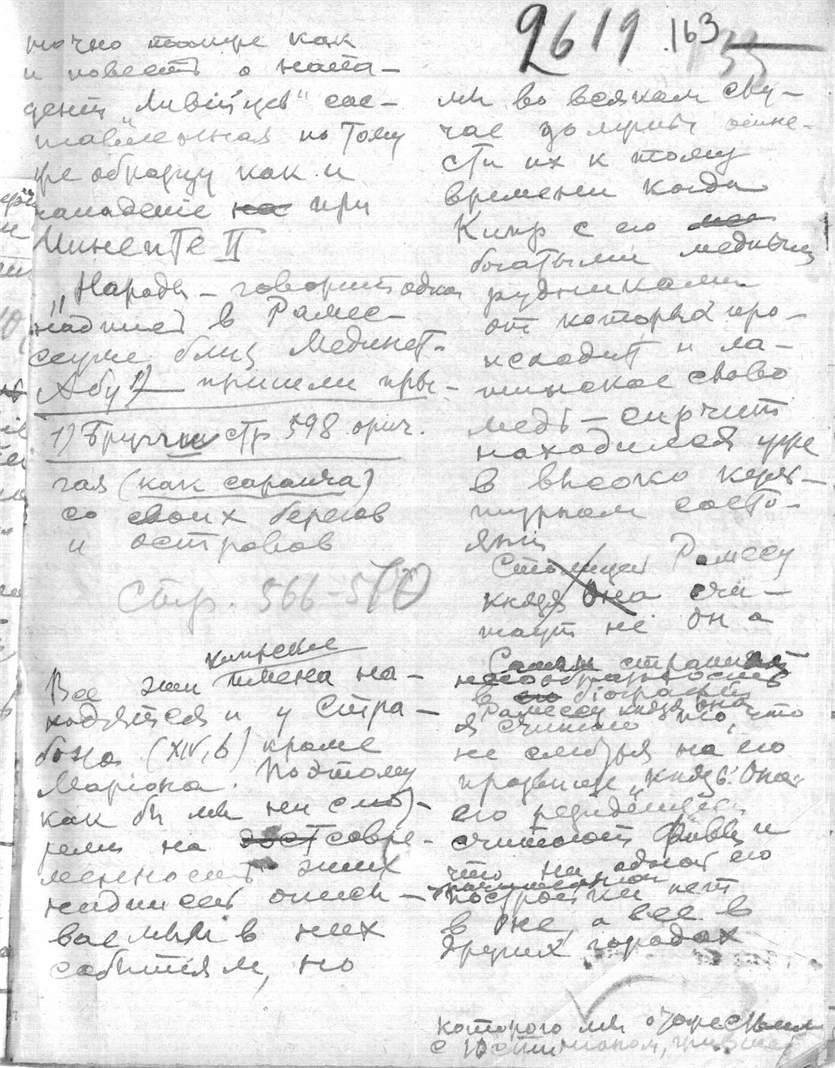 2619 163
точно также как
и повесть о напа-
дении „Ливійцев" сос-
тавленная по тому
же образцу как и
нападение на при
Минепте II
„Народы — говорит одна
надпись в Рамес-
сеуме близ Мединет-
Абу 1) — пришли пры-
1) Бругш стр 598 ориг.
гая (как саранча)
со своих берегов
и островов
Стр. 566-570
кипрские
Все эти имена на-
ходятся и у Стра-
бона (XIV, 6) кроме
Мариона. Поэтому
как бы мы ни смот-
рели на дост совре-
менность этих
надписей описы-
ваемым в них
событіям, но
мы во всяком слу-
чае должны отне-
сти их к тому
времени когда
Кипр с его мед
богатыми медными
рудниками
от которых про-
исходит и ла-
тинское слово
медь —
находился уже
в высоко куль-
турном состо-
янии
Столицей Рамсеу
князя Она счи-
тают не он а
Самая странная
несообразность
в его біографіи
Рамсеу князя Она
я считаю то, что
не смотря на его
прозвище „князь Она"
его резиденцией
считают Фивы и
что ни одной его
постройки нет
в Оне, а все в
других городах
которого мы отожествили
с Юстинианом,